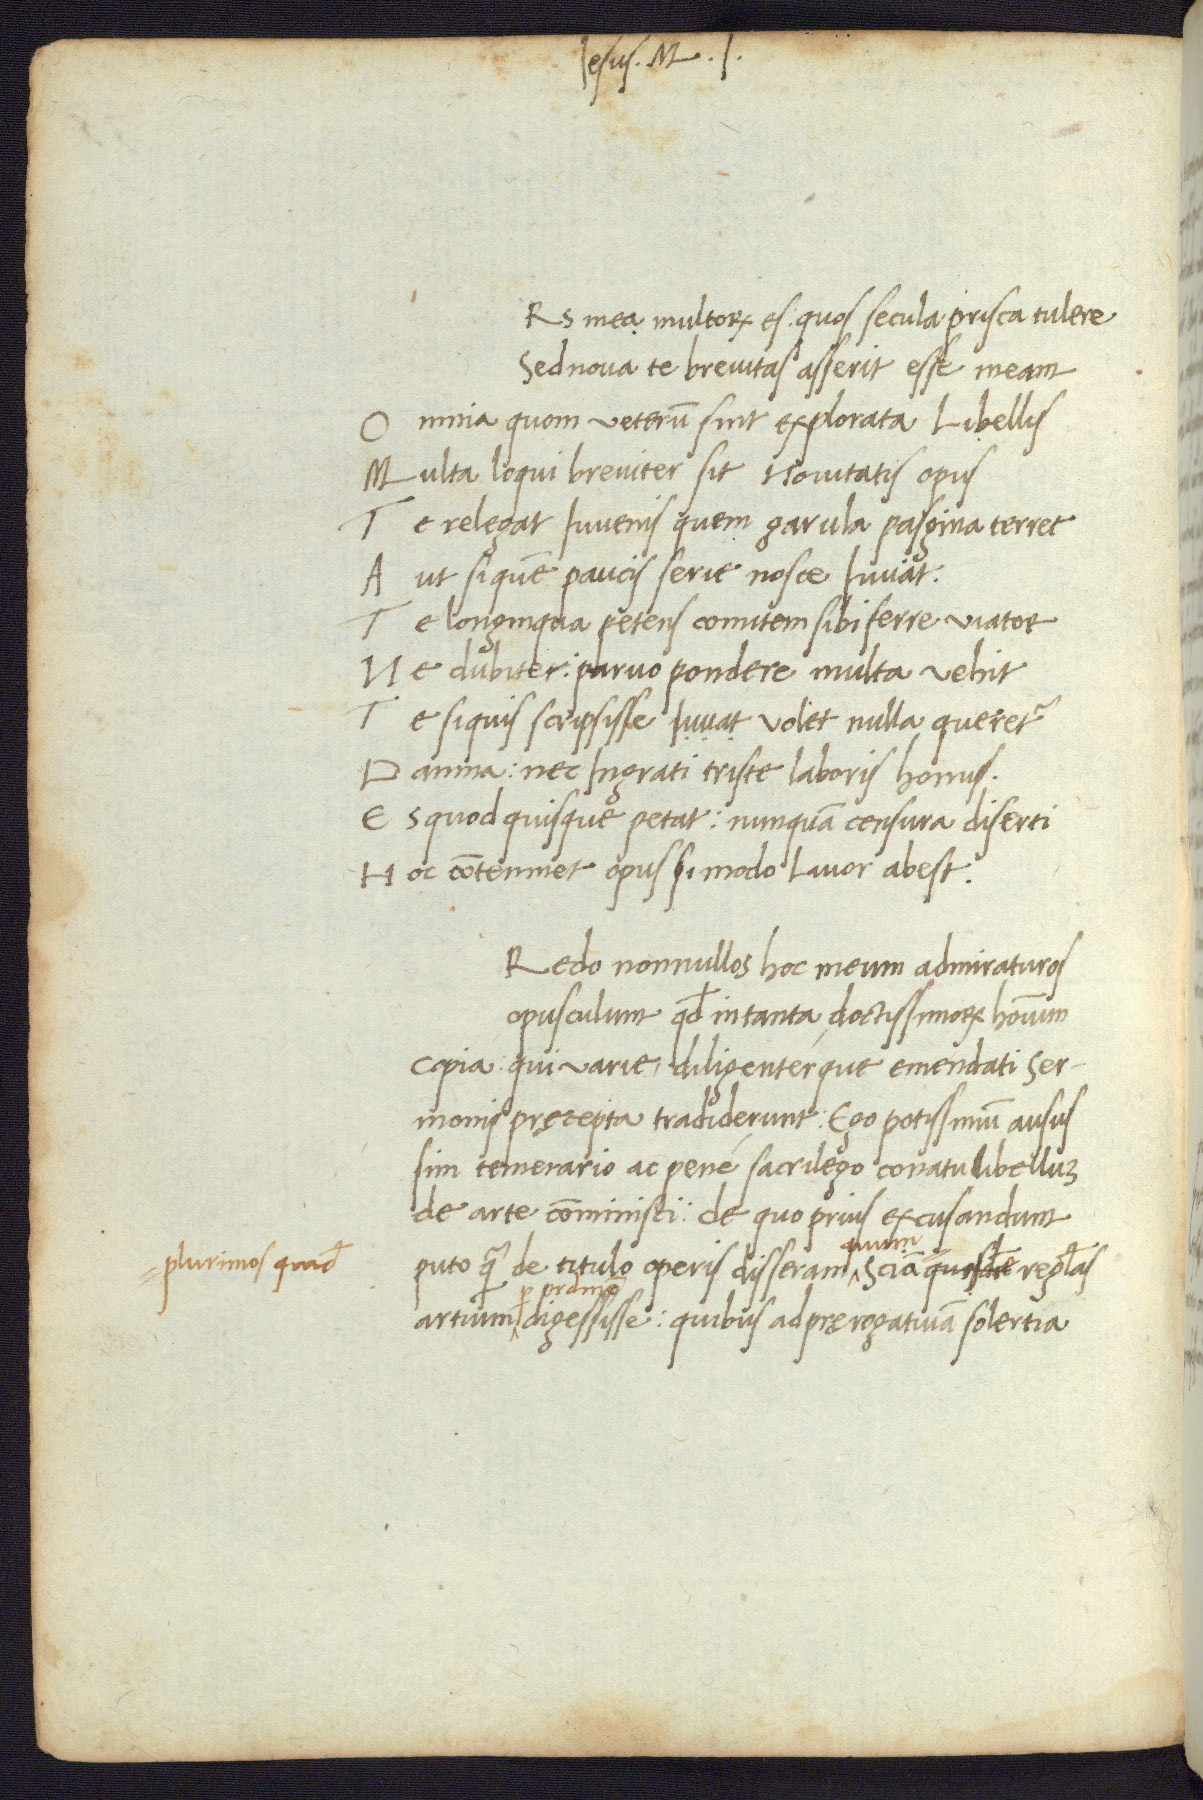 Iesus. M. I.
Rs mea multoꝝ es: quos secula prisca tulere
Sed noua te breuitas asserit esse meam
Omnia quom veterū sint explorata Libellis
Multa loqui breuiter sit Nouitatis opus
Te relegat Iuuenis quem garula pagina terret
Aut siquē paucis serie nosce Iuuat.
Te longinqua petens comitem sibi ferre viator
Ne dubitet: paruo pondere multa vehit
Te siquis scripsisse Iuuat volet nulla queret᷑
Damna: nec Ingrati triste laboris honus.
Es quod quisque petat: nunquā censura diserti
Hoc cōtemnet opus si modo Liuor abest.
Redo nonnullos hoc meum admiraturos
opusculum qđ in tanta doctissimoꝝ hoīum
copia: qui varie diligenterque emendati Ser-
monis pręcepta tradiderunt: Ego potissimū ausus
sim temerario ac pené sacrilego conatu libelluꝫ
de arte cōminisci: de quo prius excusandum
quum
plurimos quid puto ꝙ de titulo operis disseram Sciā regl̄as
artium digessisse: quibus ad pręrogatiuā solertia